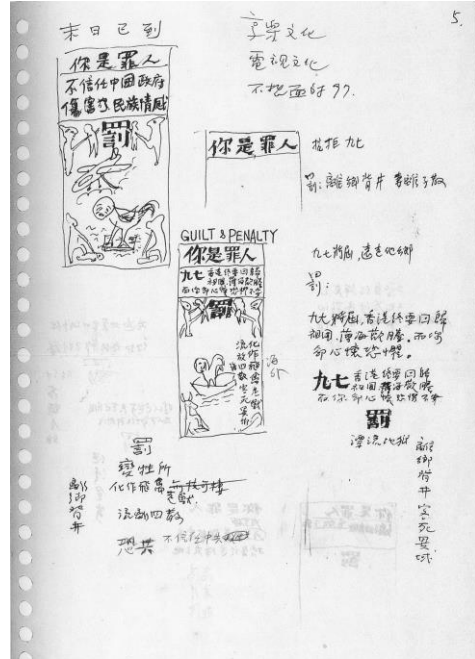 5.
末日已到
享樂文化
電視文化
不想面對97.
你是罪人
不信任中国政府
傷害了民族情感
罰
你是罪人
抗拒九七
罰: 離鄉背井 妻離子散
GUILT & PENALTY
你是罪人
九七 香港終要回歸
祖國, 薄海歡騰
罰
化作飛禽走獸
流放四數
客死異鄉
九七將屆, 遠走他鄉
罰:
九七將屆, 香港終要回歸
祖國, 薄海歡騰. 而你
卻心懷恐懼.
九七 香港終要回歸
祖國 薄海歡騰
而你卻心懷恐懼不安
罰
漂流他鄉
離鄉背井客死異域
罰
變牲所
化作飛禽走獸
流離四散
離鄉背井
恐共 不信任中共